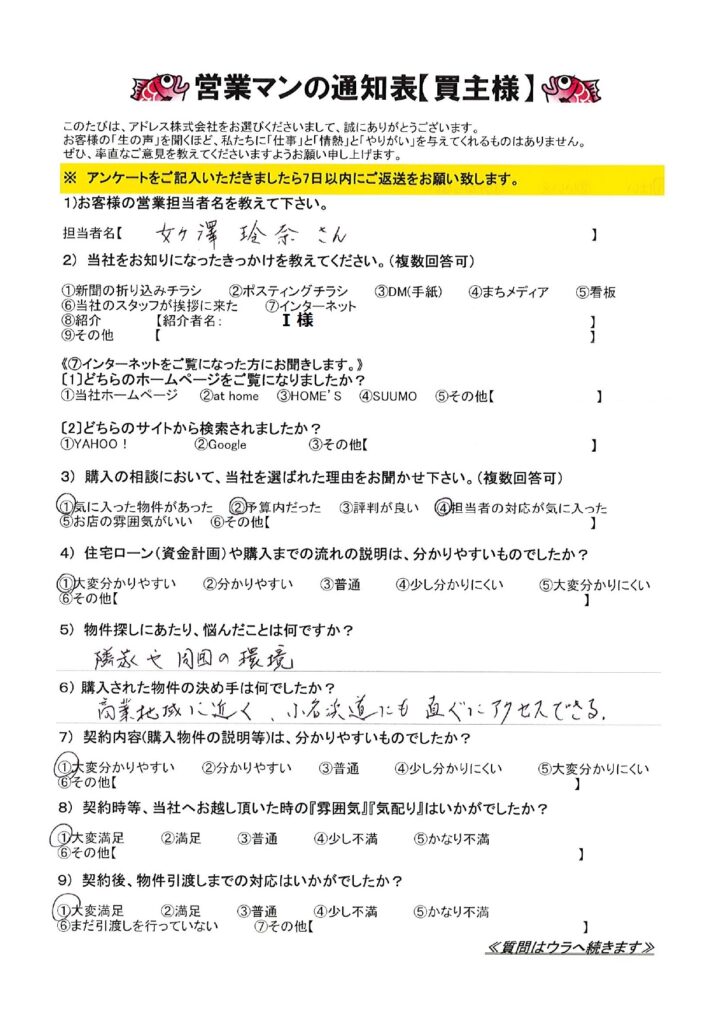 営業マンの通知表【買主様】
このたびは、アドレス株式会社をお選びくださいまして、誠にありがとうございます。
お客様の「生の声」を聞くほど、私たちに「仕事」と「情熱」と「やりがい」を与えてくれるものはありません。
ぜひ、率直なご意見を教えてくださいますようお願い申し上げます。
※ アンケートをご記入いただきましたら7日以内にご返送をお願い致します。
1)お客様の営業担当者名を教えて下さい。
担当者名【 女ケ澤 玲奈 さん 】
2) 当社をお知りになったきっかけを教えてください。(複数回答可)
①新聞の折り込みチラシ ②ポスティングチラシ ③DM(手紙) ④まちメディア ⑤看板
⑥当社のスタッフが挨拶に来た ⑦インターネット
⑧紹介 【紹介者名: I 様 】
⑨その他 【 】
《⑦インターネットをご覧になった方にお聞きします。》
〔1〕どちらのホームページをご覧になりましたか?
①当社ホームページ ②at home ③HOME'S ④SUUMO ⑤その他【 】
〔2〕どちらのサイトから検索されましたか?
①YAHOO! ②Google ③その他【 】
3) 購入の相談において、当社を選ばれた理由をお聞かせ下さい。(複数回答可)
①気に入った物件があった ②予算内だった ③評判が良い ④担当者の対応が気に入った
⑤お店の雰囲気がいい ⑥その他【 】
4) 住宅ローン(資金計画)や購入までの流れの説明は、分かりやすいものでしたか?
①大変分かりやすい ②分かりやすい ③普通 ④少し分かりにくい ⑤大変分かりにくい
⑥その他【 】
5) 物件探しにあたり、悩んだことは何ですか?
隣家や周囲の環境
6) 購入された物件の決め手は何でしたか?
商業地域に近く、小名浜道にも直ぐにアクセスできる。
7) 契約内容(購入物件の説明等)は、分かりやすいものでしたか?
①大変分かりやすい ②分かりやすい ③普通 ④少し分かりにくい ⑤大変分かりにくい
⑥その他【 】
8) 契約時等、当社へお越し頂いた時の『雰囲気』『気配り』はいかがでしたか?
①大変満足 ②満足 ③普通 ④少し不満 ⑤かなり不満
⑥その他【 】
9) 契約後、物件引渡しまでの対応はいかがでしたか?
①大変満足 ②満足 ③普通 ④少し不満 ⑤かなり不満
⑥まだ引渡しを行っていない ⑦その他【 】
≪質問はウラへ続きます≫